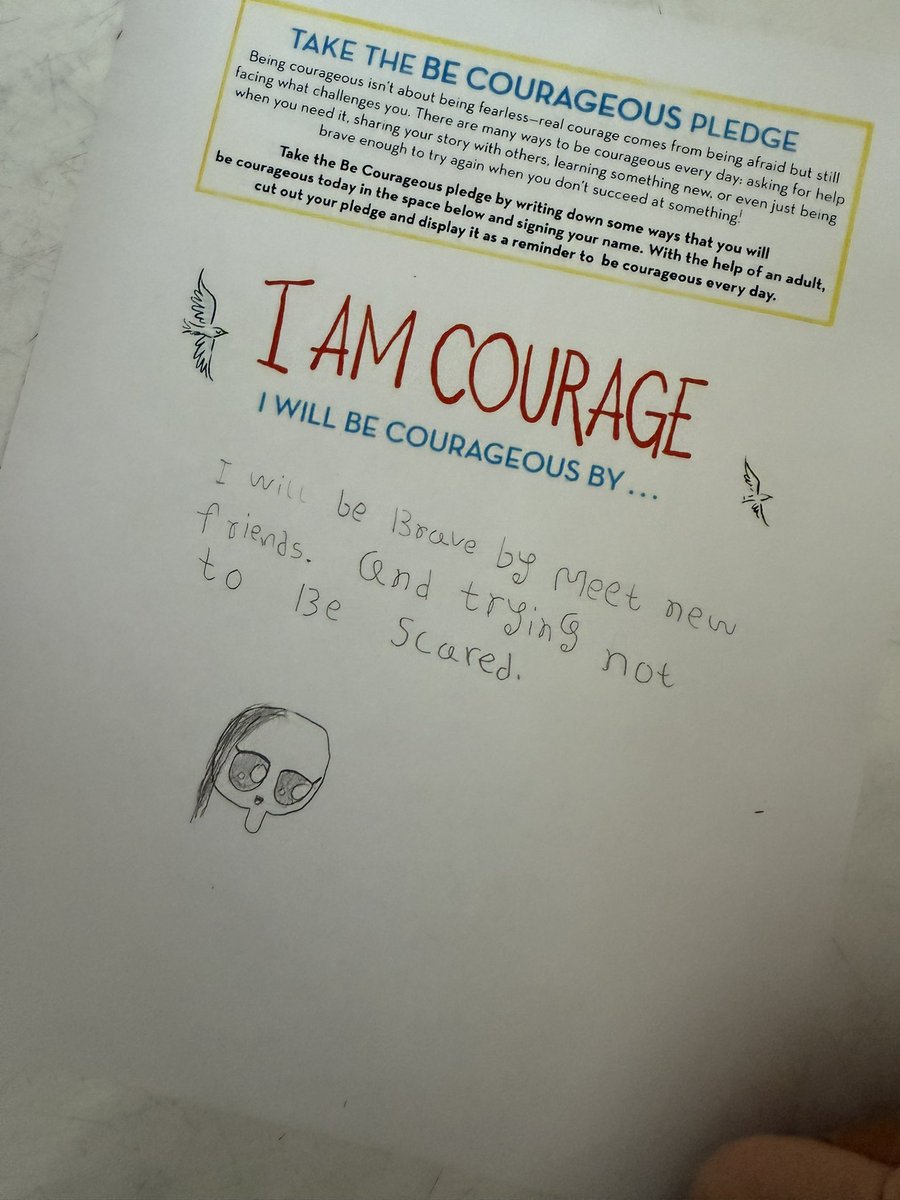 TAKE THE BE COURAGEOUS PLEDGE
Being courageous isn't about being fearless—real courage comes from being afraid but still
facing what challenges you. There are many ways to be courageous every day: asking for help
when you need it, sharing your story with others, learning something new, or even just being
brave enough to try again when you don't succeed at something!
Take the Be Courageous pledge by writing down some ways that you will
be courageous today in the space below and signing your name. With the help of an adult,
cut out your pledge and display it as a reminder to be courageous every day.
I AM COURAGE
I WILL BE COURAGEOUS BY ...
I will be Brave by Meet new
friends. and trying not
to Be Scared.